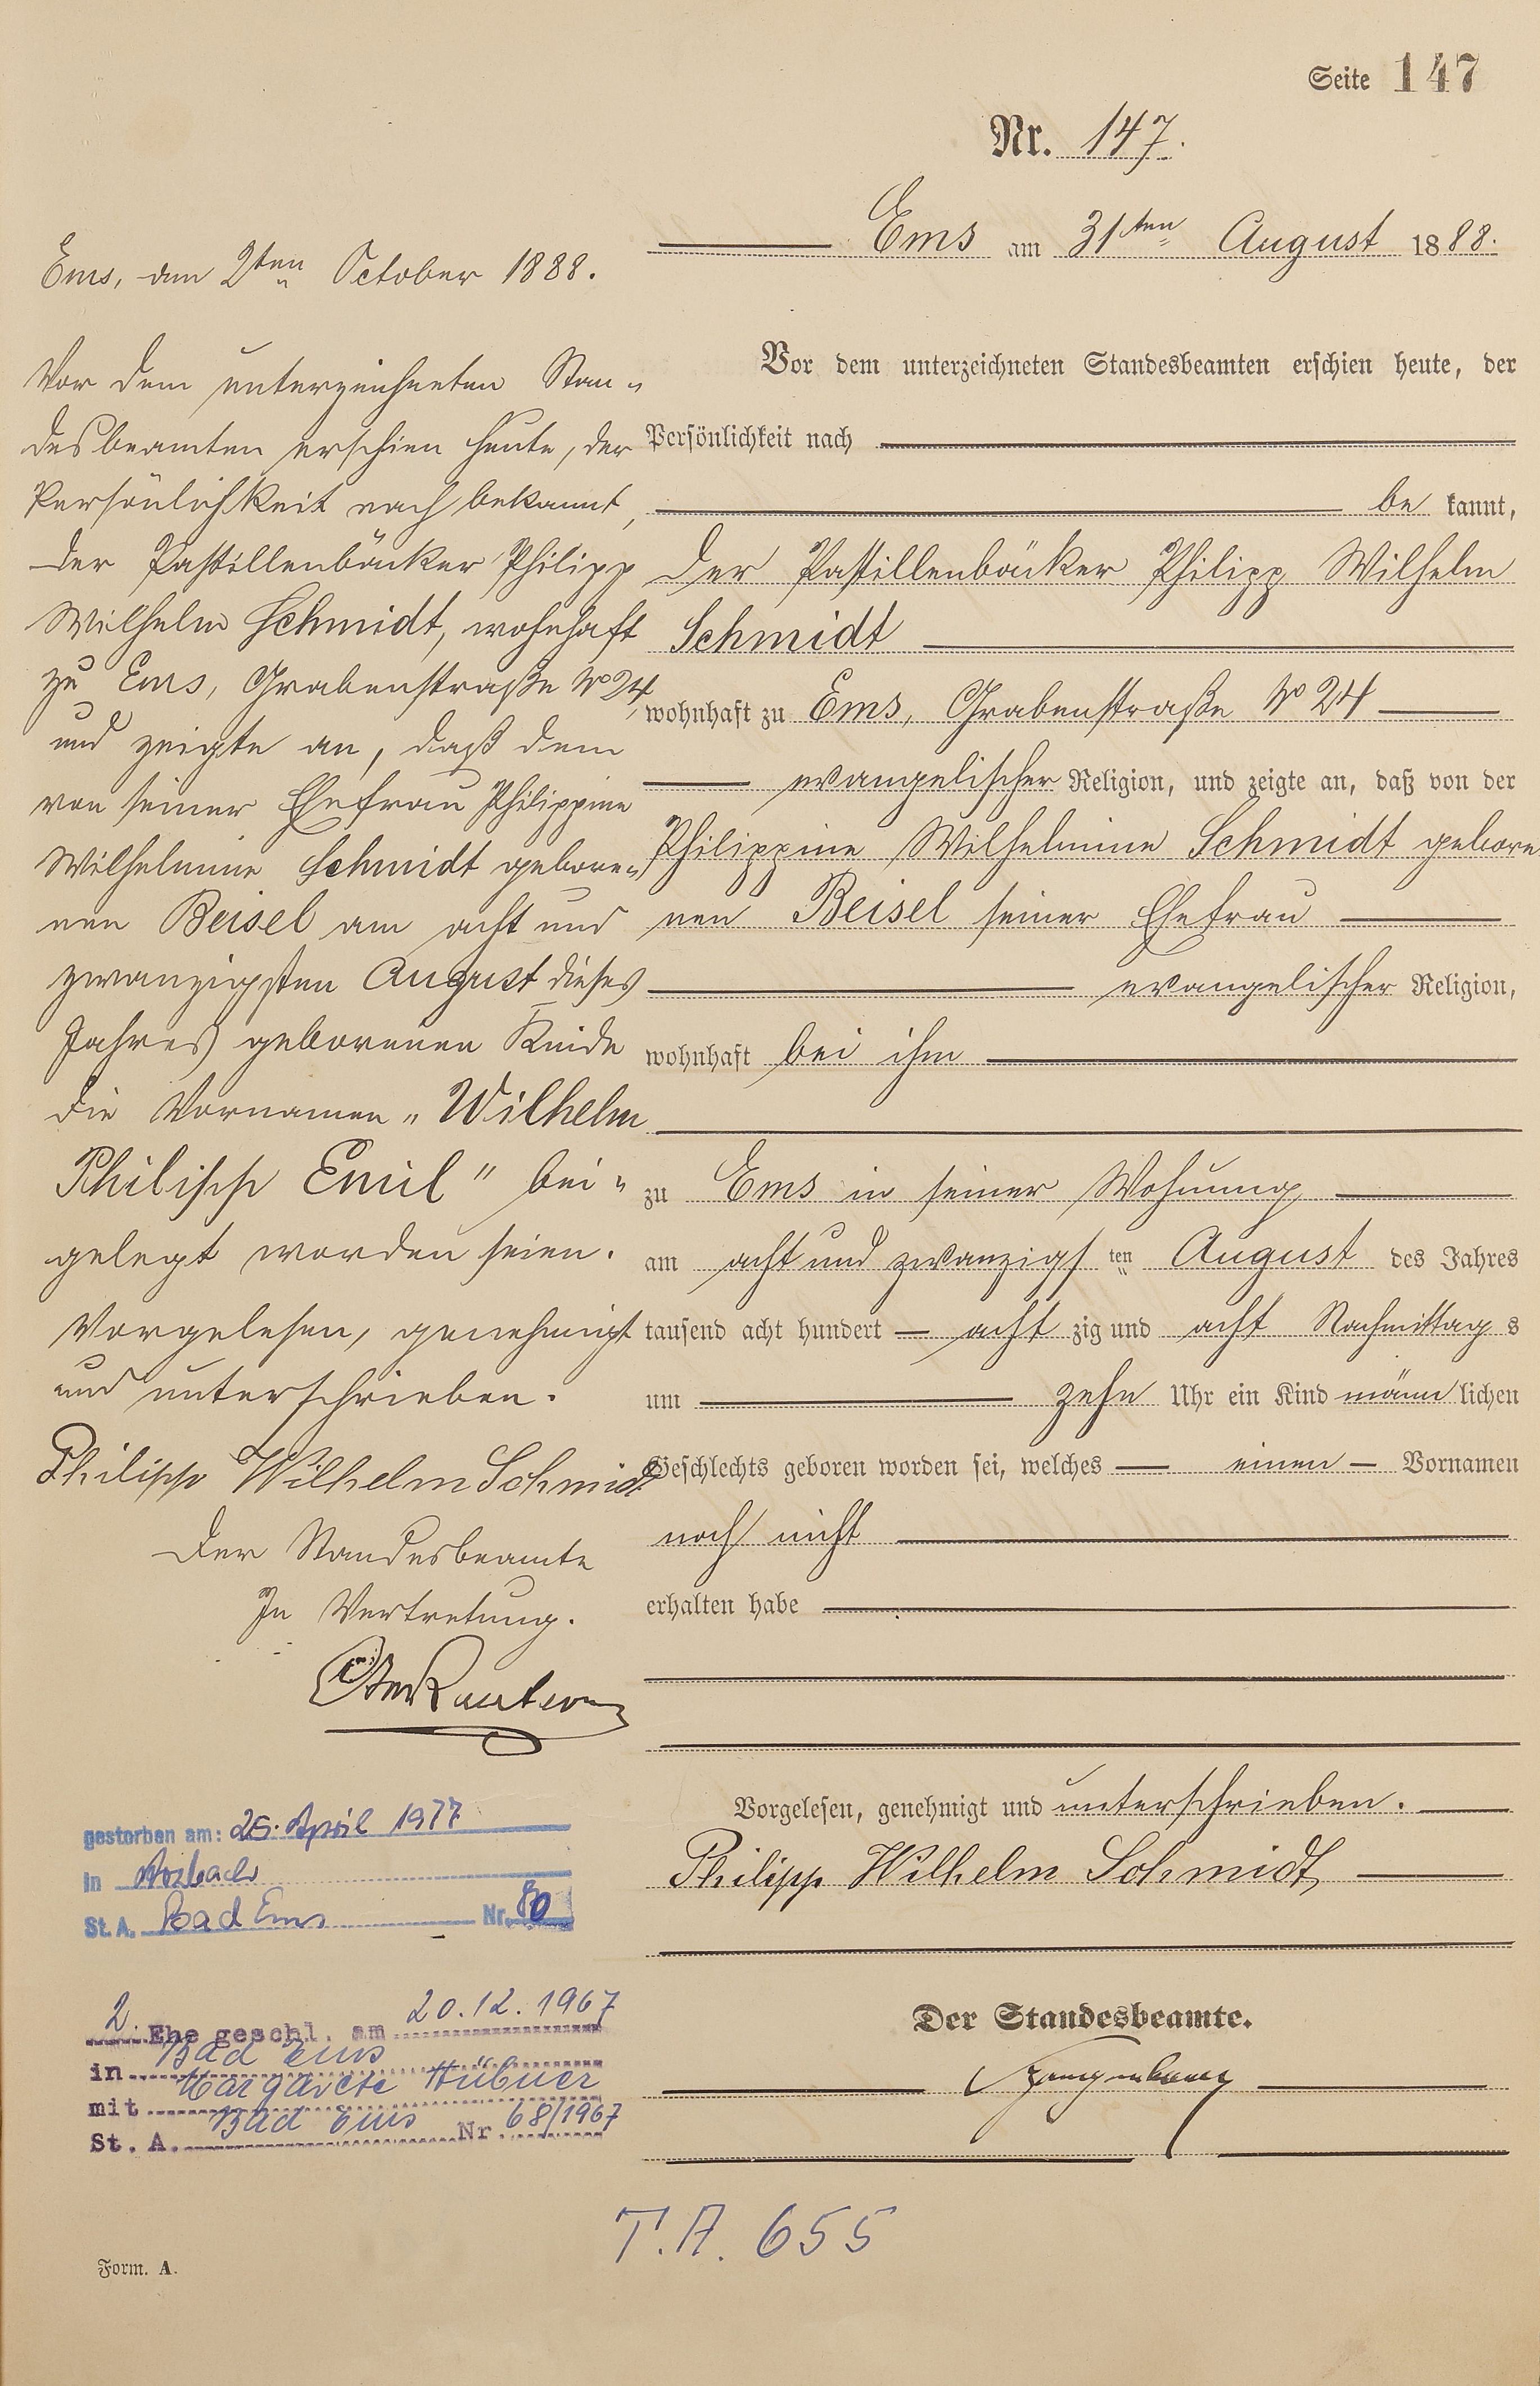 Seite 147
Nr. 147.
Ems am 31ten August 1888.
Vor dem unterzeichneten Standesbeamten erschien heute, der
Persönlichkeit nach
be kannt,
der Pastillenbäcker Philipp Wilhelm
Schmidt
wohnhaft zu Ems, Grabenstraße No 24
evangelischer Religion, und zeigte an, daß von der
Philippine Wilhelmine Schmidt gebore
nen Beisel seiner Ehefrau
evangelischer Religion,
wohnhaft bei ihm
zu Ems in seiner Wohnung
am acht und zwanzigs ten August des Jahres
tausend acht hundert acht zig und acht Nachmittag s
um zehn Uhr ein Kind männ lichen
Geschlechts geboren worden sei, welches einen Vornamen
noch nicht
erhalten habe
Vorgelesen, genehmigt und unterschrieben.
Philipp Wilhelm Schmidt
Der Standesbeamte.
Ems, am 2ten October 1888.
Vor dem unterzeichneten Stan-
desbeamten erschien heute, der
Persönlichkeit nach bekannt,
der Pastillenbäcker Philipp
Wilhelm Schmidt, wohnhaft
zu Ems, Grabenstraße No 24,
und zeigte an, daß dem
von seiner Ehefrau Philippine
Wilhelmine Schmidt gebore-
nen Beisel am acht und
zwanzigsten August dieses
Jahres geborenen Kinde
die Vornamen „Wilhelm
Philipp Emil" bei-
gelegt worden seien.
Vorgelesen, genehmigt
und unterschrieben.
Philipp Wilhelm Schmidt
Der Standesbeamte
In Vertretung.
gestorben am: 26. April 1977
in Arzbach
St. A. Bad Ems Nr. 80
2. Ehe geschl. am 20.12.1967
in Bad Ems
mit Margarete Hübner
St. A. Bad Ems Nr. 68/1967
T.A. 655
Form. A.